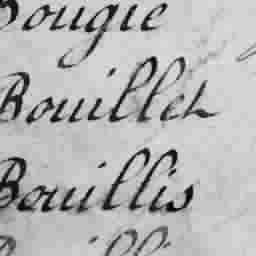 Bougie
Bouillet
Bouillis